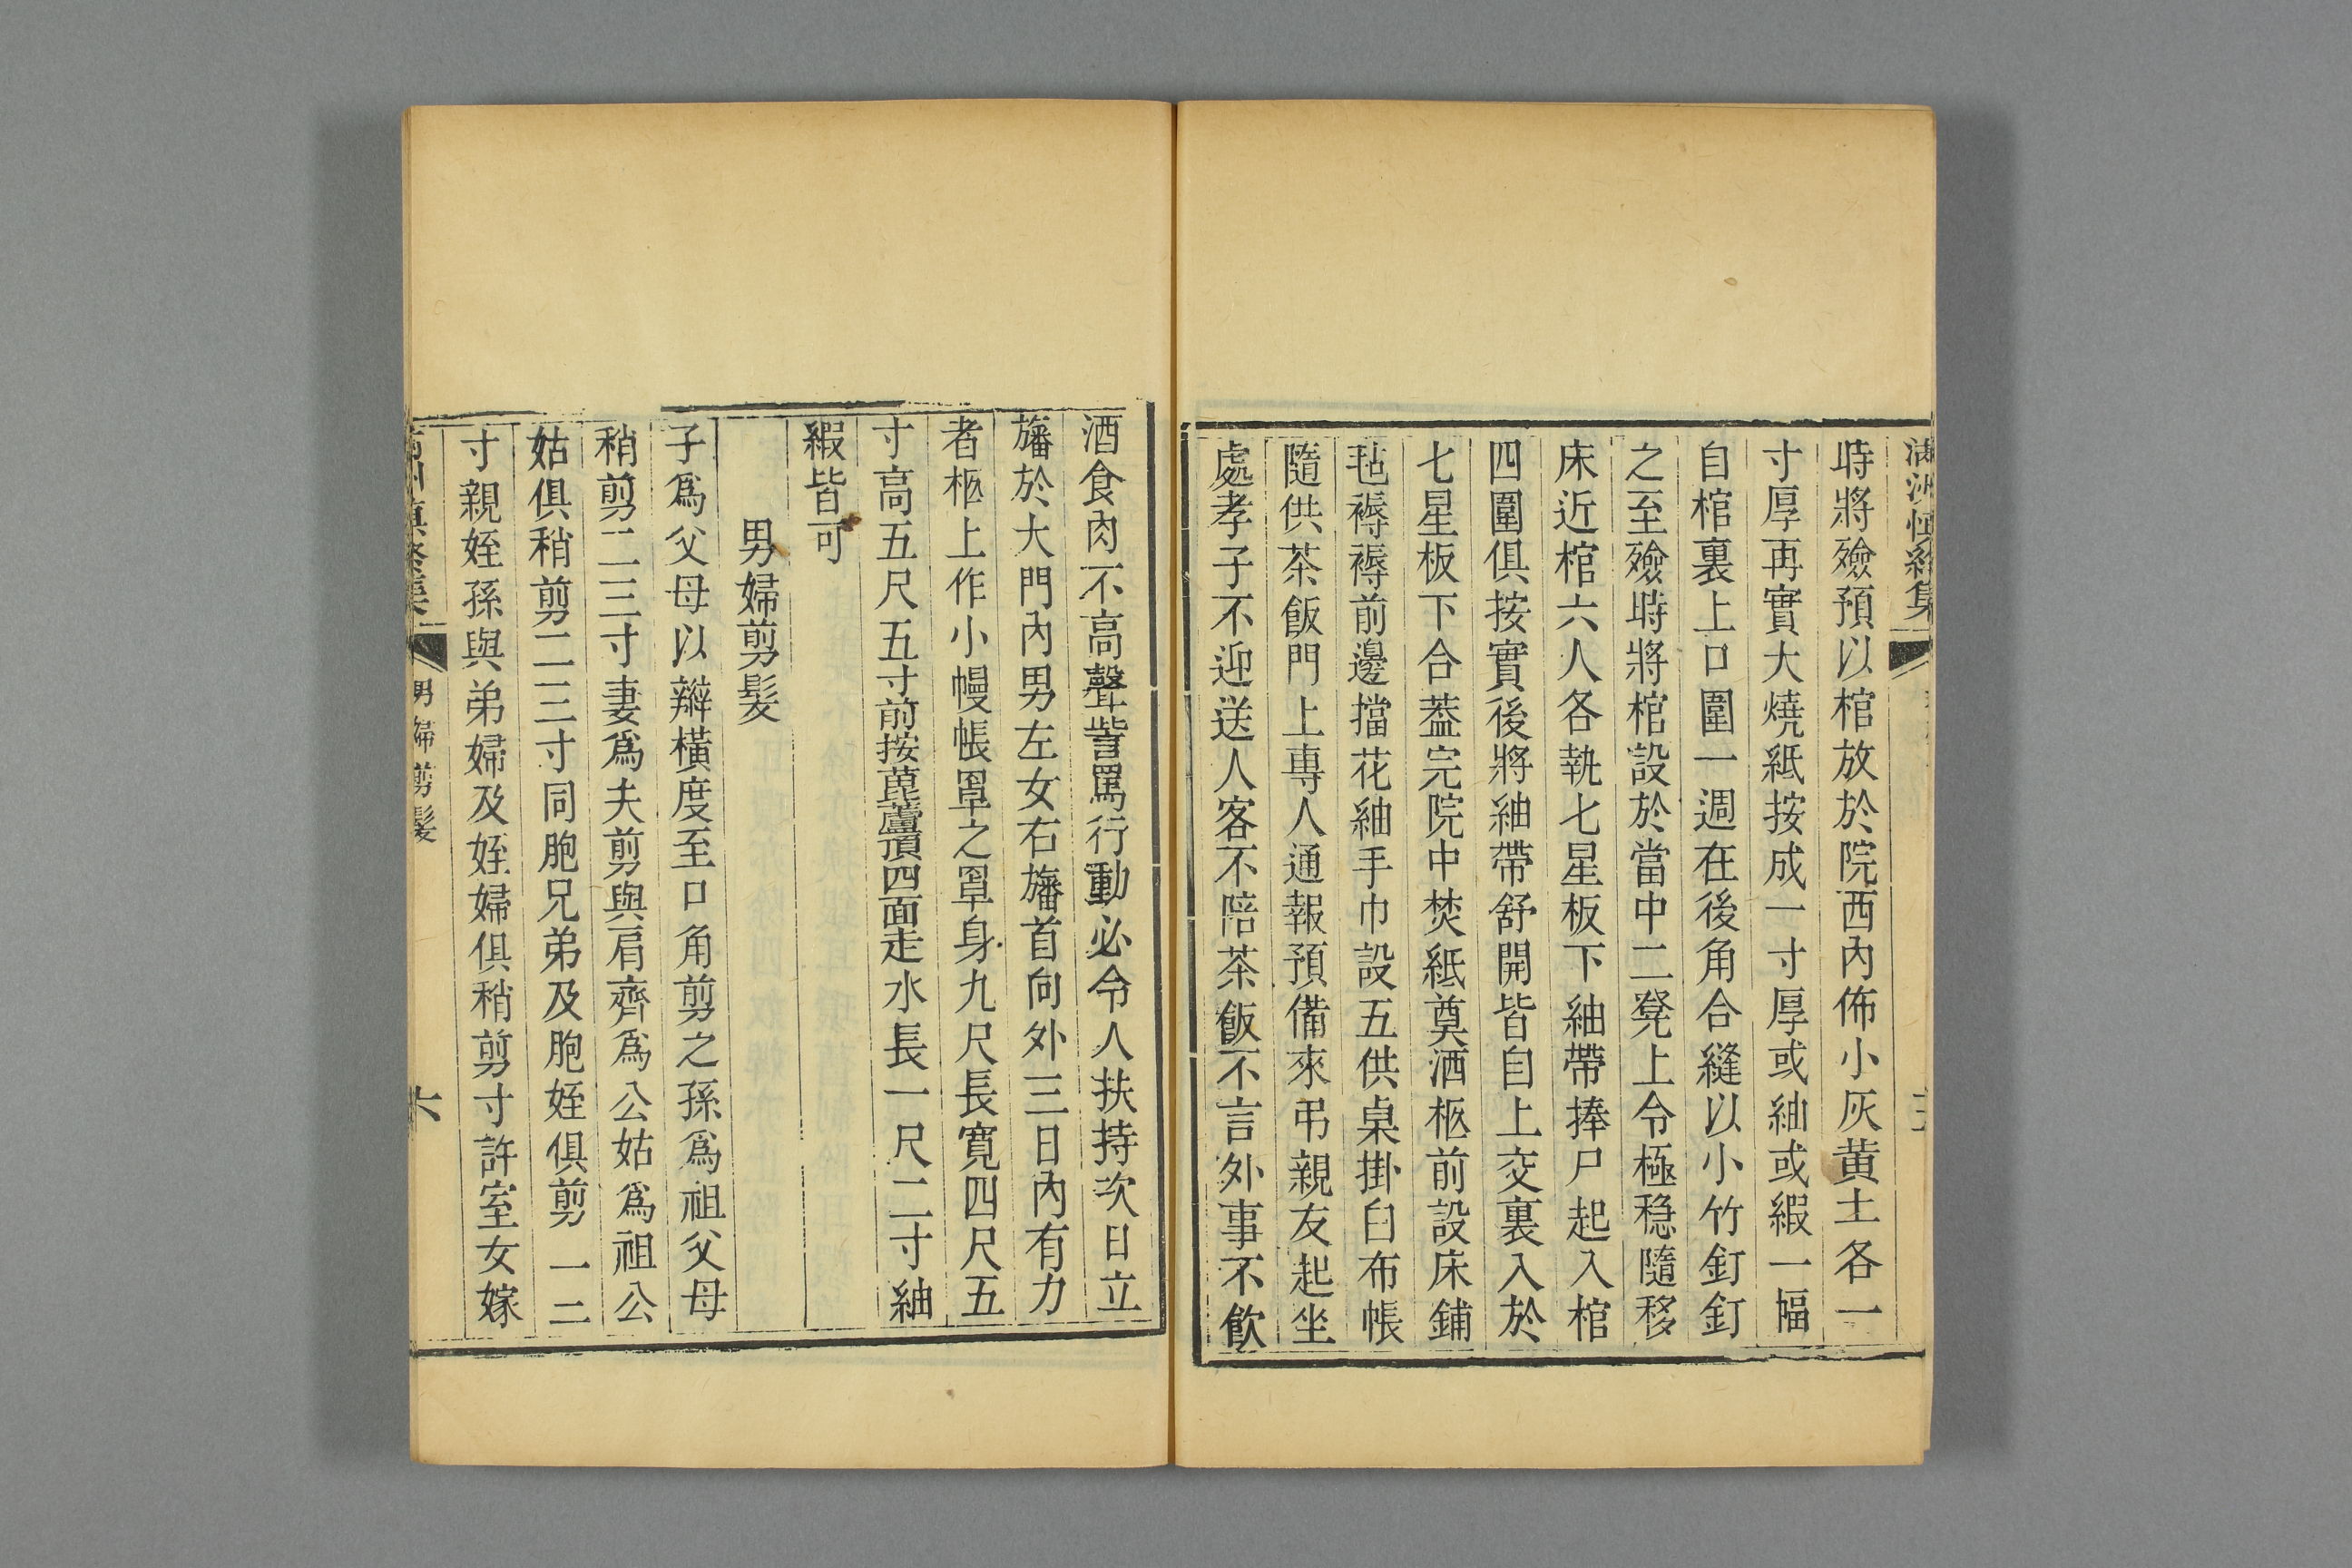 滿洲慎終集
時將殮預以棺放於院西內佈小灰黃土各一
寸厚再實大燒紙按成一寸厚或紬或緞一幅
自棺裏上口圍一週在後角合縫以小竹釘釘
之至殮時將棺設於當中二凳上令極稳隨移
床近棺六人各執七星板下紬帶捧尸起入棺
四圍俱按實後將紬帶舒開皆自上交裏入於
七星板下合葢完院中焚紙奠酒柩前設床鋪
毡褥褥前邊擋花紬手巾設五供桌掛白布帳
隨供茶飯門上專人通報預備來弔親友起坐
處孝子不迎送人客不陪茶飯不言外事不飲
酒食肉不高聲訾罵行動必令人扶持次日立
旛於大門內男左女右旛首向外三日內有力
者柩上作小幔帳罩之罩身九尺長寬四尺五
寸高五尺五寸前按葫蘆頂四面走水長一尺二寸紬
緞皆可
男婦剪髮
子爲父母以辮橫度至口角剪之孫爲祖父母
稍剪二三寸妻爲夫剪與肩齊爲公姑爲祖公
姑俱稍剪二三寸同胞兄弟及胞姪俱剪一二
寸親姪孫與弟婦及姪婦俱稍剪寸許室女嫁
滿洲慎終集 男婦剪髮 六